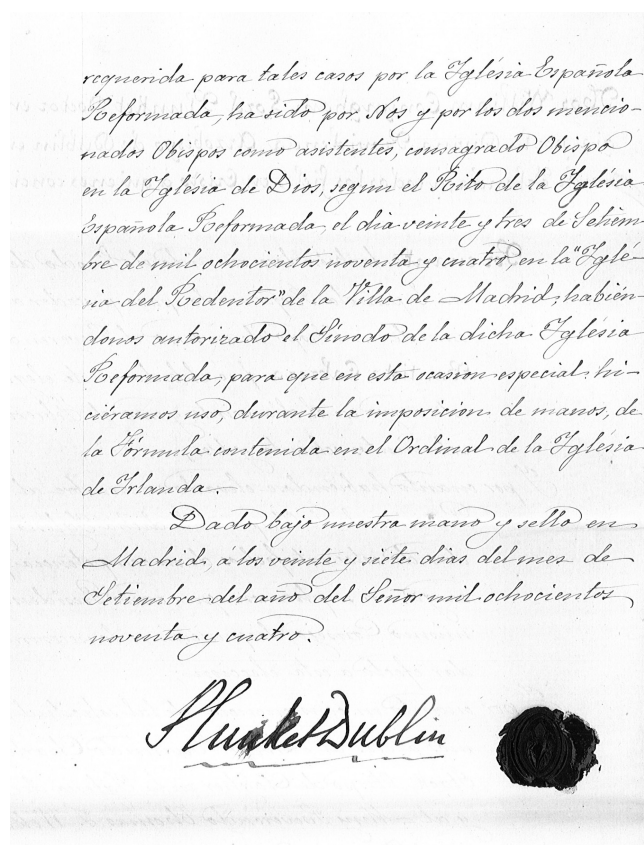 requerida para tales casos por la Iglésia Española
Reformada, ha sido por Nos y por los dos mencio-
nados Obispos como asistentes, consagrado Obispo
en la Iglésia de Dios, segun el Rito de la Iglésia
Española Reformada, el dia veinte y tres de Setiem-
bre de mil ochocientos noventa y cuatro, en la "Iglé-
sia del Redentor" de la Villa de Madrid; habién-
donos autorizado el Sínodo de la dicha Iglésia
Reformada, para que en esta ocasion especial, hi-
ciéramos uso, durante la imposicion de manos, de
la Fórmula contenida en el Ordinal de la Iglésia
de Irlanda.-
Dado bajo nuestra mano y sello en
Madrid, á los veinte y siete dias del mes de
Setiembre del año del Señor mil ochocientos
noventa y cuatro.
Plunket Dublin